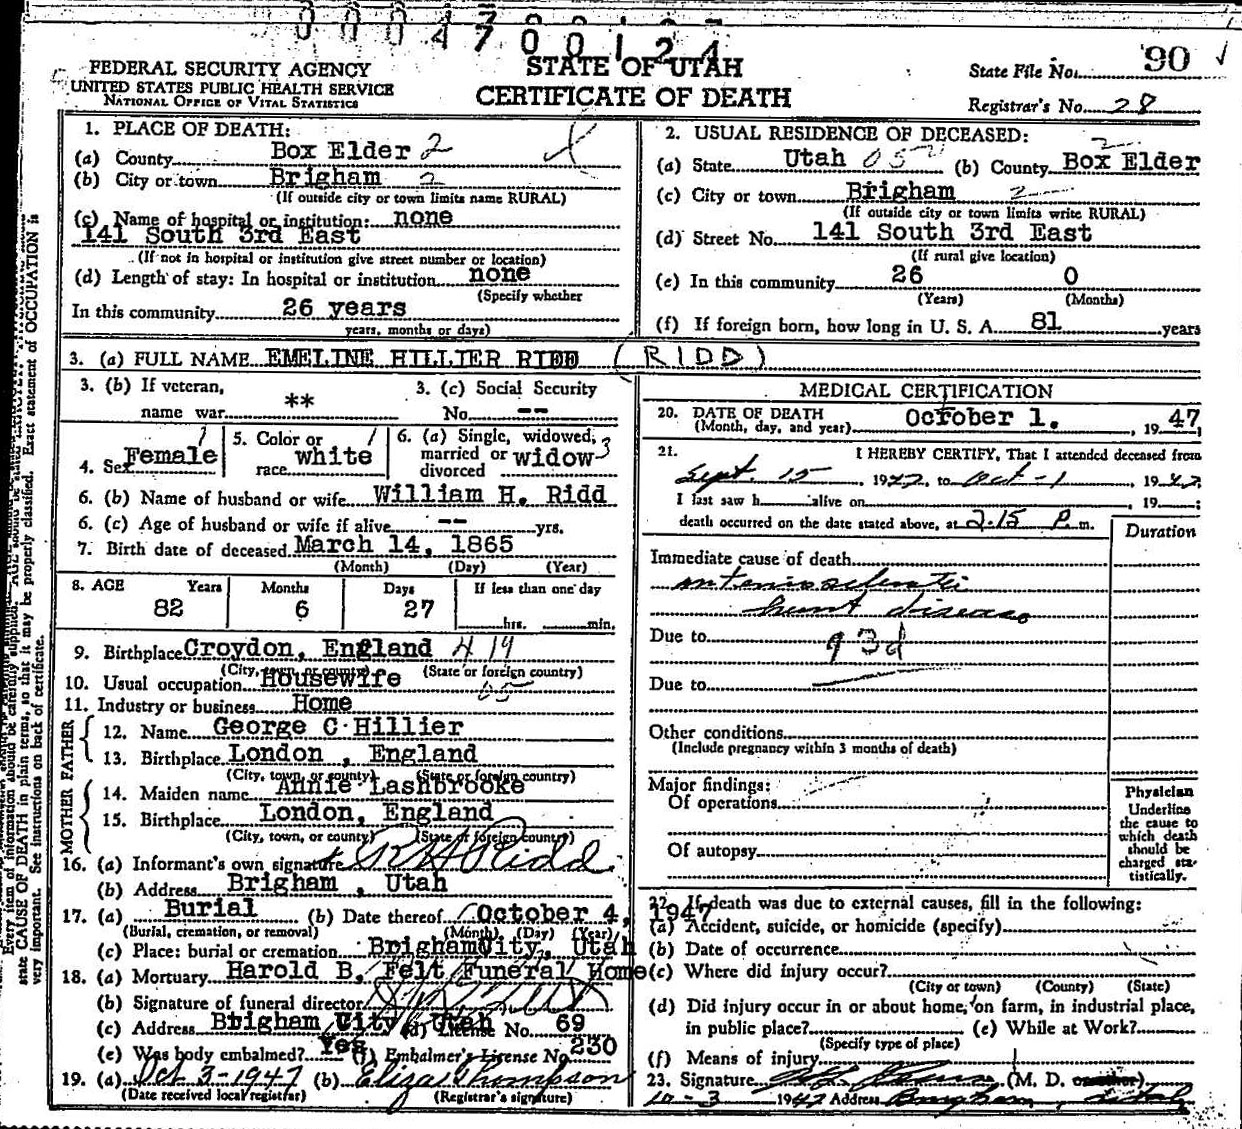 00047 00124
FEDERAL SECURITY AGENCY
UNITED STATES PUBLIC HEALTH SERVICE
NATIONAL OFFICE OF VITAL STATISTICS
STATE OF UTAH
CERTIFICATE OF DEATH
State File No. 90
Registrar's No. 28
1. PLACE OF DEATH:
(a) County Box Elder 2
(b) City or town Brigham 2
(If outside city or town limits name RURAL)
(c) Name of hospital or institution: none
141 South 3rd East
(If not in hospital or institution give street number or location)
(d) Length of stay: In hospital or institution none
(Specify whether
In this community 26 years
years, months or days)
2. USUAL RESIDENCE OF DECEASED:
(a) State Utah 052 (b) County Box Elder
(c) City or town Brigham 2
(If outside city or town limits write RURAL)
(d) Street No. 141 South 3rd East
(If rural give location)
(e) In this community 26 0
(Years) (Months)
(f) If foreign born, how long in U. S. A. 81 years
3. (a) FULL NAME EMELINE HILLIER RIDD (RIDD)
3. (b) If veteran,
name war **
3. (c) Social Security
No. --
4. Sex Female
5. Color or
race white
6. (a) Single, widowed,
married or
divorced widow 3
6. (b) Name of husband or wife William H. Ridd
6. (c) Age of husband or wife if alive -- yrs.
7. Birth date of deceased March 14, 1865
(Month) (Day) (Year)
8. AGE Years Months Days If less than one day
82 6 27 hrs. min.
9. Birthplace Croydon, England 419
(City, town, or county) (State or foreign country)
10. Usual occupation Housewife
11. Industry or business Home 65
FATHER
12. Name George C Hillier
13. Birthplace London, England
(City, town, or county) (State or foreign country)
MOTHER
14. Maiden name Annie Lashbrooke
15. Birthplace London, England
(City, town, or county) (State or foreign country)
16. (a) Informant's own signature R H Ridd
(b) Address Brigham, Utah
17. (a) Burial (b) Date thereof October 4, 1947
(Burial, cremation, or removal) (Month) (Day) (Year)
(c) Place: burial or cremation Brigham City, Utah
18. (a) Mortuary Harold B. Felt Funeral Home
(b) Signature of funeral director
(c) Address Brigham City Utah (d) License No. 69
(e) Was body embalmed? Yes (f) Embalmer's License No. 230
19. (a) Oct 3-1947 (b) Eliza Thompson
(Date received local registrar) (Registrar's signature)
MEDICAL CERTIFICATION
20. DATE OF DEATH
(Month, day, and year) October 1. , 1947
21. I HEREBY CERTIFY, That I attended deceased from
Sept. 15, 1947, to Oct-1, 1947
I last saw h alive on , 19 ;
death occurred on the date stated above, at 2.15 P.m.
Duration
Immediate cause of death
arteriosclerotic
heart disease
Due to 93d
Due to
Other conditions
(Include pregnancy within 3 months of death)
Major findings:
Of operations
Of autopsy
Physician
Underline
the cause to
which death
should be
charged sta-
tistically.
22. If death was due to external causes, fill in the following:
(a) Accident, suicide, or homicide (specify)
(b) Date of occurrence
(c) Where did injury occur?
(City or town) (County) (State)
(d) Did injury occur in or about home, on farm, in industrial place,
in public place? (e) While at Work?
(Specify type of place)
(f) Means of injury
23. Signature (M. D. or other)
10-3 1947 Address Brigham, Utah
Every item of information should be carefully supplied. AGE should be stated
state CAUSE OF DEATH in plain terms, so that it may be properly classified. Exact statement of OCCUPATION is
very important. See instructions on back of certificate.